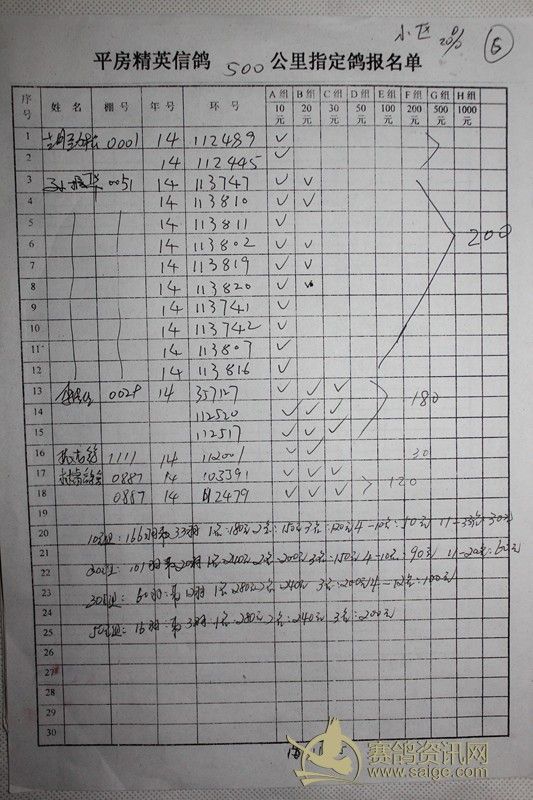 小区 20%
6
平房精英信鸽 500 公里指定鸽报名单
序号 姓名 棚号 年号 环号 A组10元 B组20元 C组30元 D组50元 E组100元 F组200元 G组500元 H组1000元
1 0001 14 112489 ✓
2 14 112445 ✓
3 0051 14 113747 ✓ ✓
4 14 113810 ✓ ✓
5 14 113811 ✓
6 14 113802 ✓ ✓ 200
7 14 113819 ✓ ✓
8 14 113820 ✓ ✓
9 14 113741 ✓
10 14 113742 ✓
11 14 113807 ✓
12 14 113816 ✓
13 14 357127 ✓ ✓ ✓
14 112520 ✓ ✓ ✓ 180
15 112517 ✓ ✓ ✓
16 1111 14 112001 ✓ ✓ 30
17 0887 14 103391 ✓ ✓ ✓
18 0887 14 112479 ✓ ✓ ✓ 120
19
20 10元组:166羽 取33羽 1名:180元 2名:150元 3名:120元 4-10名:50元 11-33名:30元
21
22 20元组:101羽 取20羽 1名:240元 2名:200元 3名:150元 4-10名:90元 11-20名:60元
23 30元组:60羽:取12羽 1名:280元 2名:240元 3名:200元 4-12名:100元
24
25 50元组:16羽:取3羽 1名:280元 2名:240元 3名:200元
26
27
28
29
30
赛鸽资讯网
www.saige.com